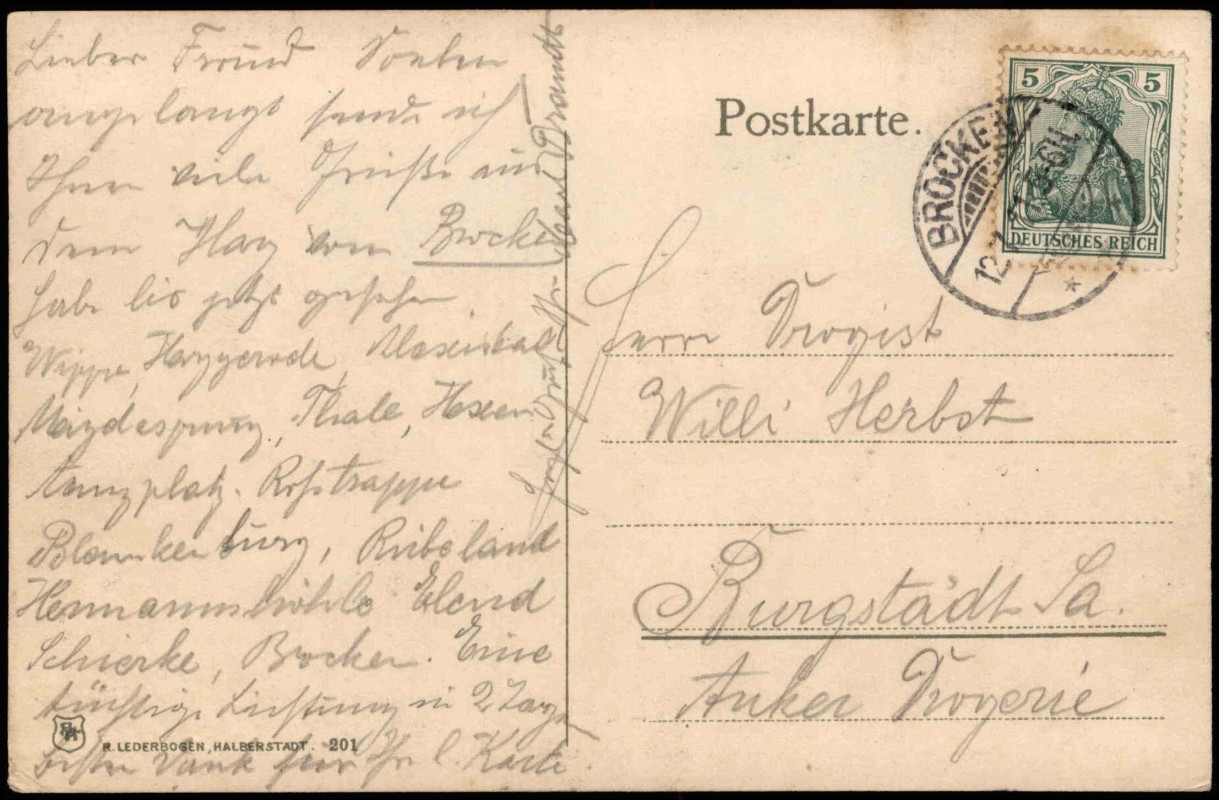 Lieber Freund Soeben
angelangt sende ich
Ihnen viele Grüße aus
dem Harz vom Brocken
Habe bis jetzt gesehen
Wippra, Harzgerode, Alexisbad
Mägdesprung, Thale, Hexen
tanzplatz. Roßtrappe
Blankenburg, Rübeland
Hermannshöhle Elend
Schierke, Brocken. Eine
tüchtige Leistung in 2 Tagen
Besten Dank für Ihr l. Karte.
Herzl. Gruß Ihr Brandt
R. LEDERBOGEN, HALBERSTADT. 201
Postkarte.
5 5
DEUTSCHES REICH
BROCKEN
12.7. 5-6N.
Herrn Drogist
Willi Herbst
Burgstädt Sa.
Anker Drogerie